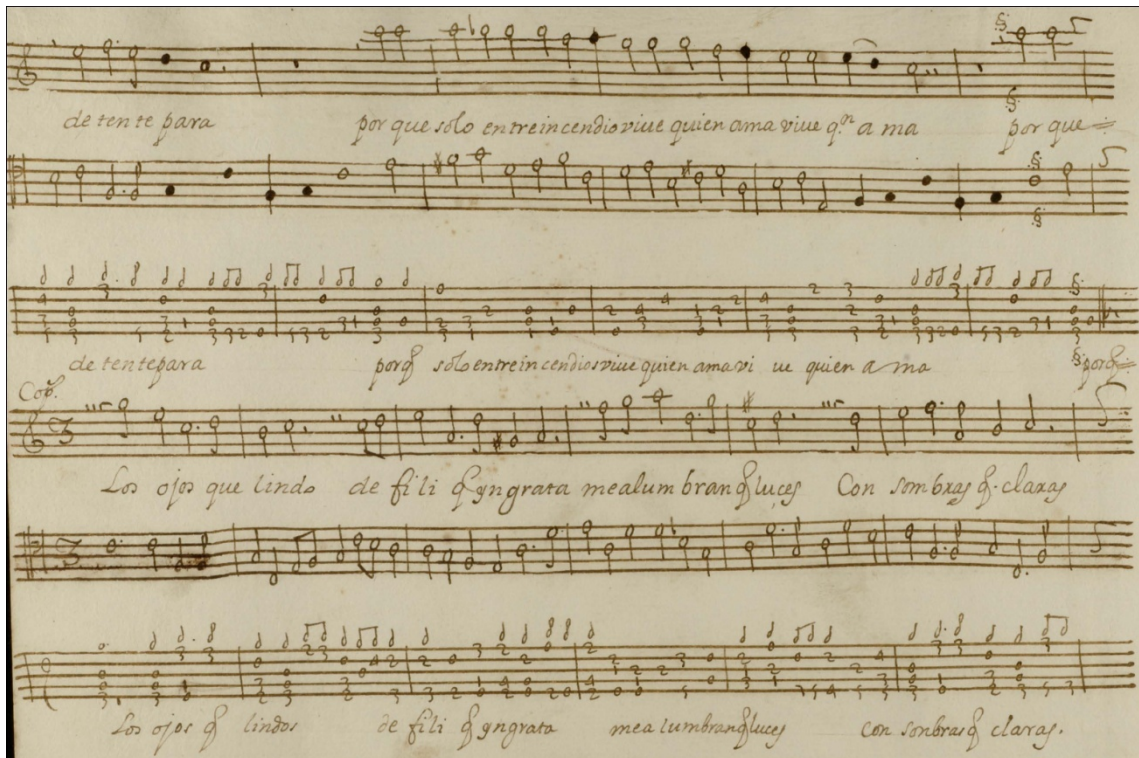 de ten te para por que solo entre incendio viue quien ama viue q.n a ma por que
de tente para porq̃ solo entre incendios viue quien ama vi ue quien a ma porq̃
Cop.s
Los ojos que lindo de fili q̃ yngrata me alum bran q̃ luces Con sombras q̃. claras
Los ojos q̃ lindos de fili q̃ yngrata mea lumbran q̃ luces Con sonbras q̃ claras.